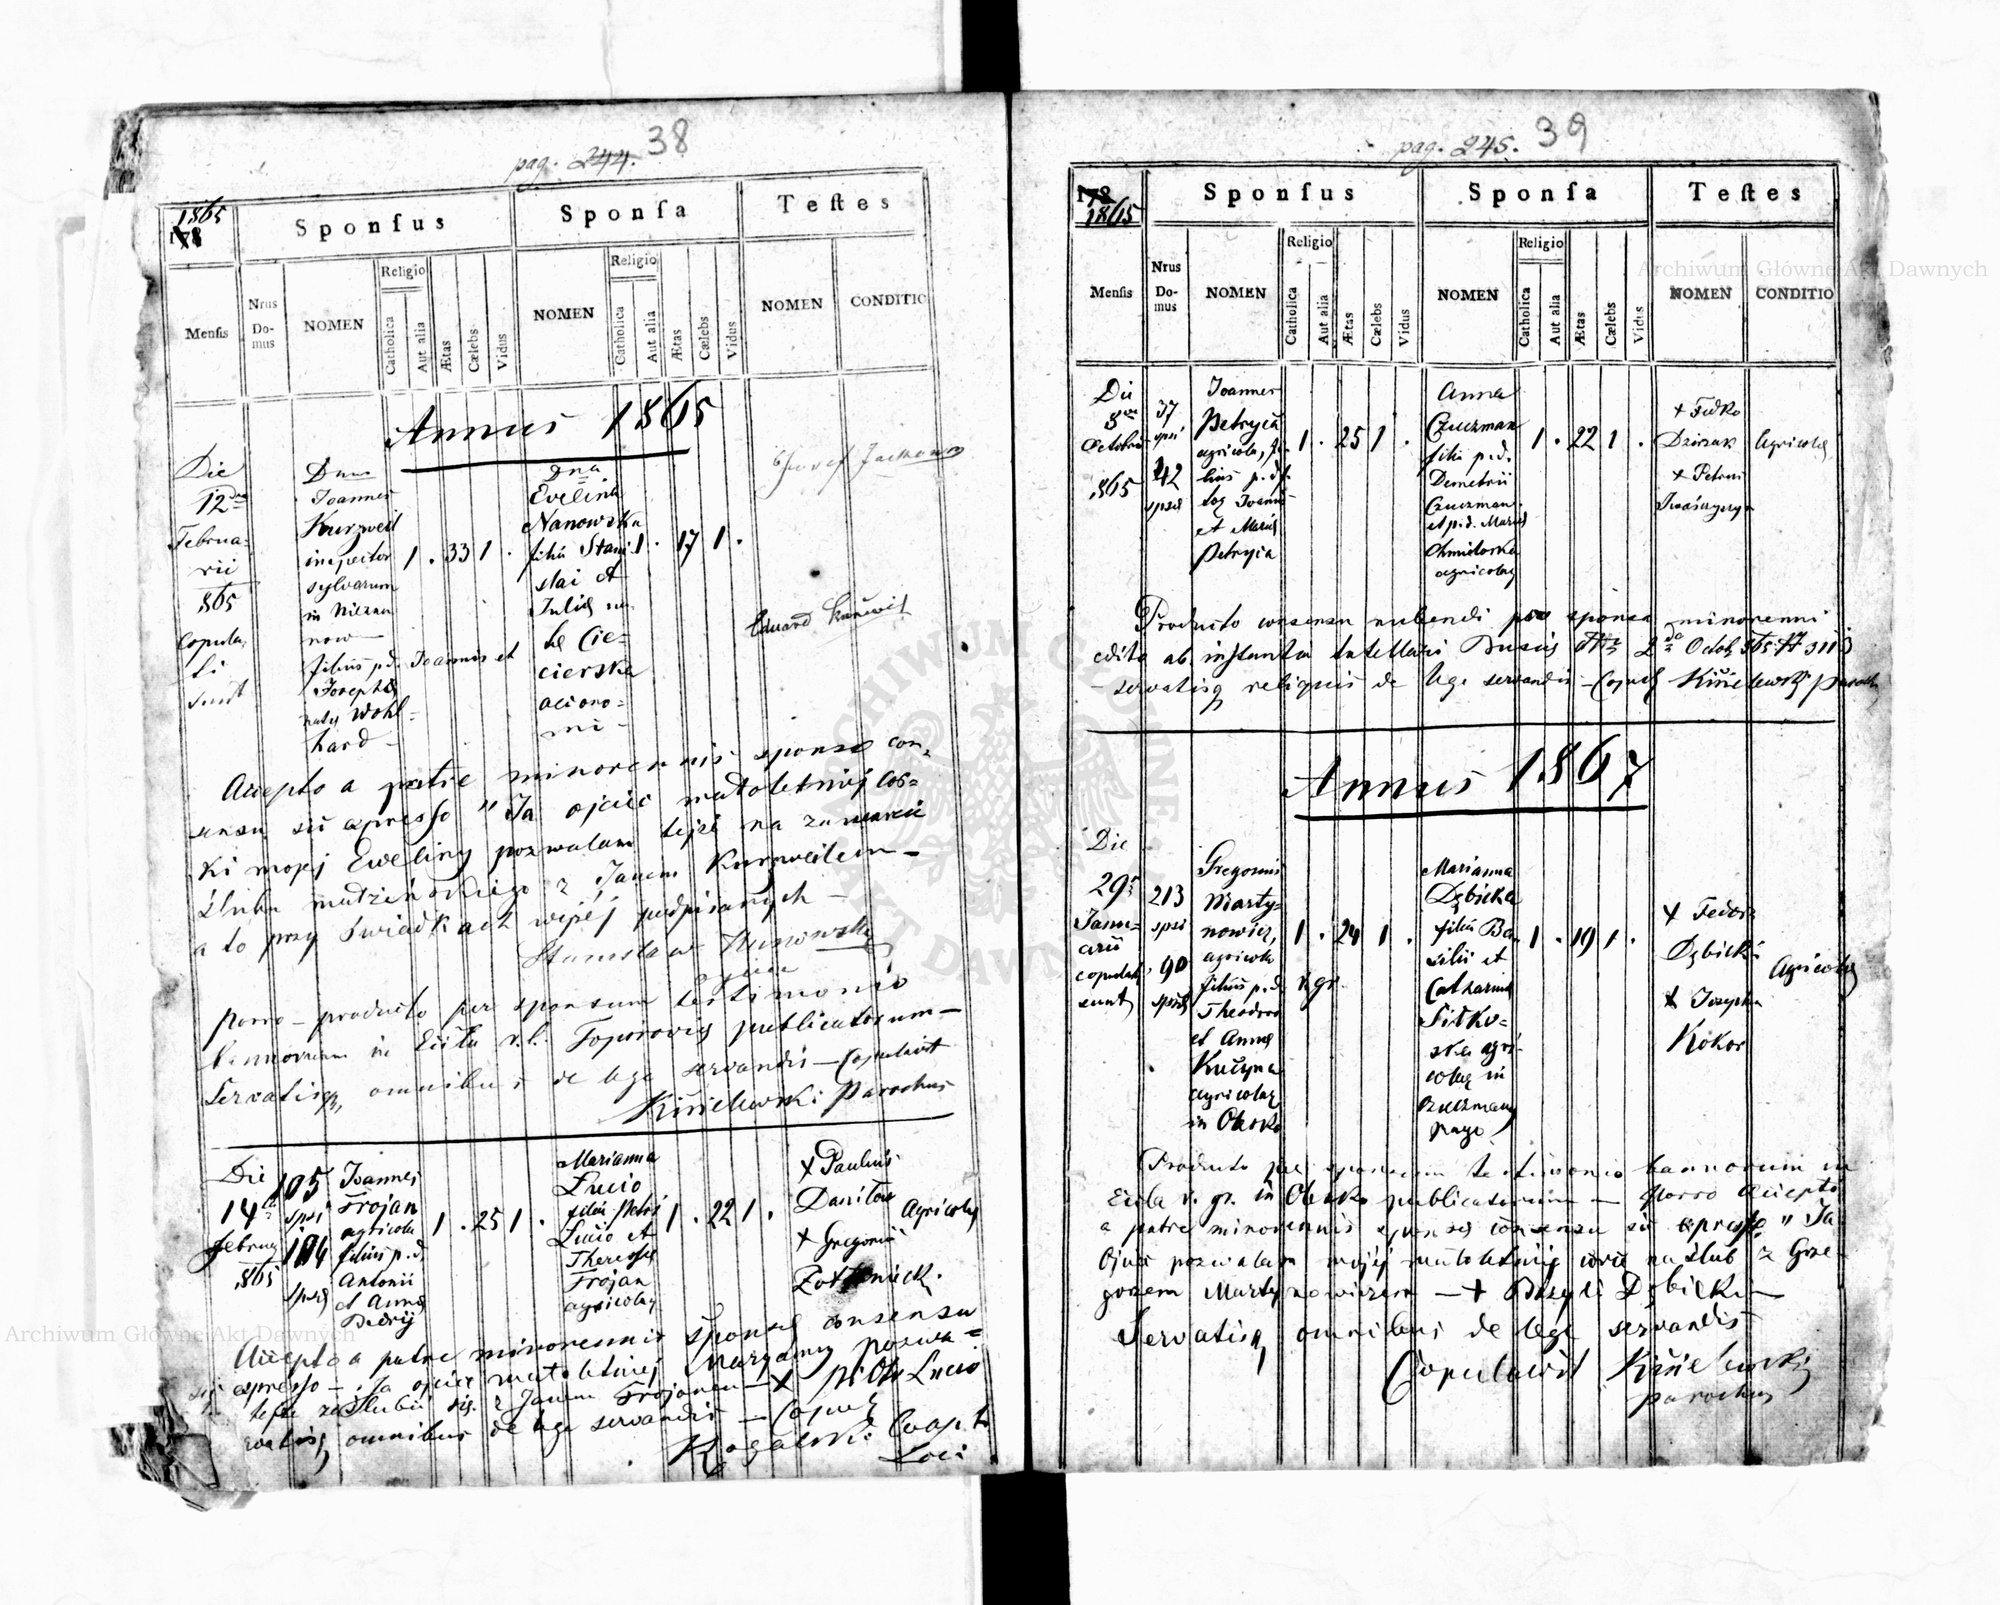 pag. 244. 38
1865
178
Sponsus
Sponsa
Testes
Mensis
Nrus Domus
NOMEN
Religio
Catholica
Aut alia
Ætas
Cælebs
Vidus
NOMEN
Religio
Catholica
Aut alia
Ætas
Cælebs
Vidus
NOMEN
CONDITIO
Annus 1865
Die
12
Februa-
rii
865
Copula-
ti
sunt
Dnus
Joannes
Kurzweil
inspector
sylvarum
in Niezna
now
filius p.d. Joannis et
Josephæ
natæ Wohl-
hard
1 . 33 1 .
Dna
Evelina
Nanowska
filia Stani
slai et
Juliæ na-
tæ Cie-
cierska
1 . 17 1 .
Józef
Eduard
Accepto a patre minorennis sponsæ con-
sensu sic expresso "Ja ojciec małoletniej cór-
ki mojej Eweliny pozwalam tejże na zawarcie
ślubu małżeńskiego z Janem Kurzweilem
a to przy świadkach wyżej podpisanych
Stanisław Nanowski
ojciec
porro producto per sponsum testimonio
bannorum in Eccla r.l. Toporoviæ publicatorum
Servatisq, omnibus de lege servandis Copulavit
Kisielewski Parochus
Die
14
Februar
865
105
spsi
104
spsæ
Joannes
Trojan
agricola
filius p.d.
Antonii
et Annæ
Bedryj
1 . 25 1 .
Marianna
Lucio
filia Petri
Lucio et
Theresiæ
Trojan
agricolæ
1 . 22 1 .
+ Paulus
Daniłow
+ Gregorius
Agricolæ
Accepto a patre minorennis sponsæ consensu
sic expresso Ja ojciec małoletniej Maryanny pozwa-
z Janem Trojanem + Piotr Lucio
omnibus de lege servandis Copul
Rogalski Coop.
Loci
pag. 245. 39
178
1865
Sponsus
Sponsa
Testes
Mensis
Nrus Do-mus
NOMEN
Religio
Catholica
Aut alia
Ætas
Cælebs
Vidus
NOMEN
Religio
Catholica
Aut alia
Ætas
Cælebs
Vidus
NOMEN
CONDITIO
Die
8
Octobris
865
37
spsi
42
spsæ
Joannes
Petrycia
agricola, fi-
lius p.d.
Joannis
et Mariæ
Petrycia
1 . 25 1 .
Anna
Czuczman
filia p.d.
Demetrii
Czuczman
et p.d. Mariæ
agricolæ
1 . 22 1 .
+ Fedko
Dziezak
+ Petrus
Agricolæ
Producto consensu nubendi pro sponsa minorenni
edito ab instantia tutellari Buscis 2 Octob 865
servatisq reliquis de lege servandis Copul Kisielewski Paroch
Annus 1867
Die
29
Janu-
arii
copulati
sunt
213
spsi
90
spsæ
Gregorius
Marty-
nowicz,
agricola
filius p.d.
Theodori
et Annæ
Kuczyna
agricolæ
in Obrok
1 . 24 1 .
r. gr.
Marianna
Dębicka
filia Ba-
silii et
Catharinæ
Sitko-
ska agri-
colæ in
Czuczmany
pago
1 . 19 1 .
+ Fedor
Dębicki
+ Jozyph
Kokor
Agricolæ
Producto per sponsum testimonio bannorum in
Eccla r. gr. in publicatorum Porro accepto
a patre minorennis sponsæ consensu sic expresso "Ja
Ojciec pozwalam mojej małoletniej córce na ślub z Grze-
gorzem Martynowiczem + Bazyli Dębicki
Servatisq omnibus de lege servandis
Copulavit Kisielewski
parochus
Archiwum Główne Akt Dawnych
ARCHIWUM GŁÓWNE AKT DAWNYCH
Archiwum Główne Akt Dawnych